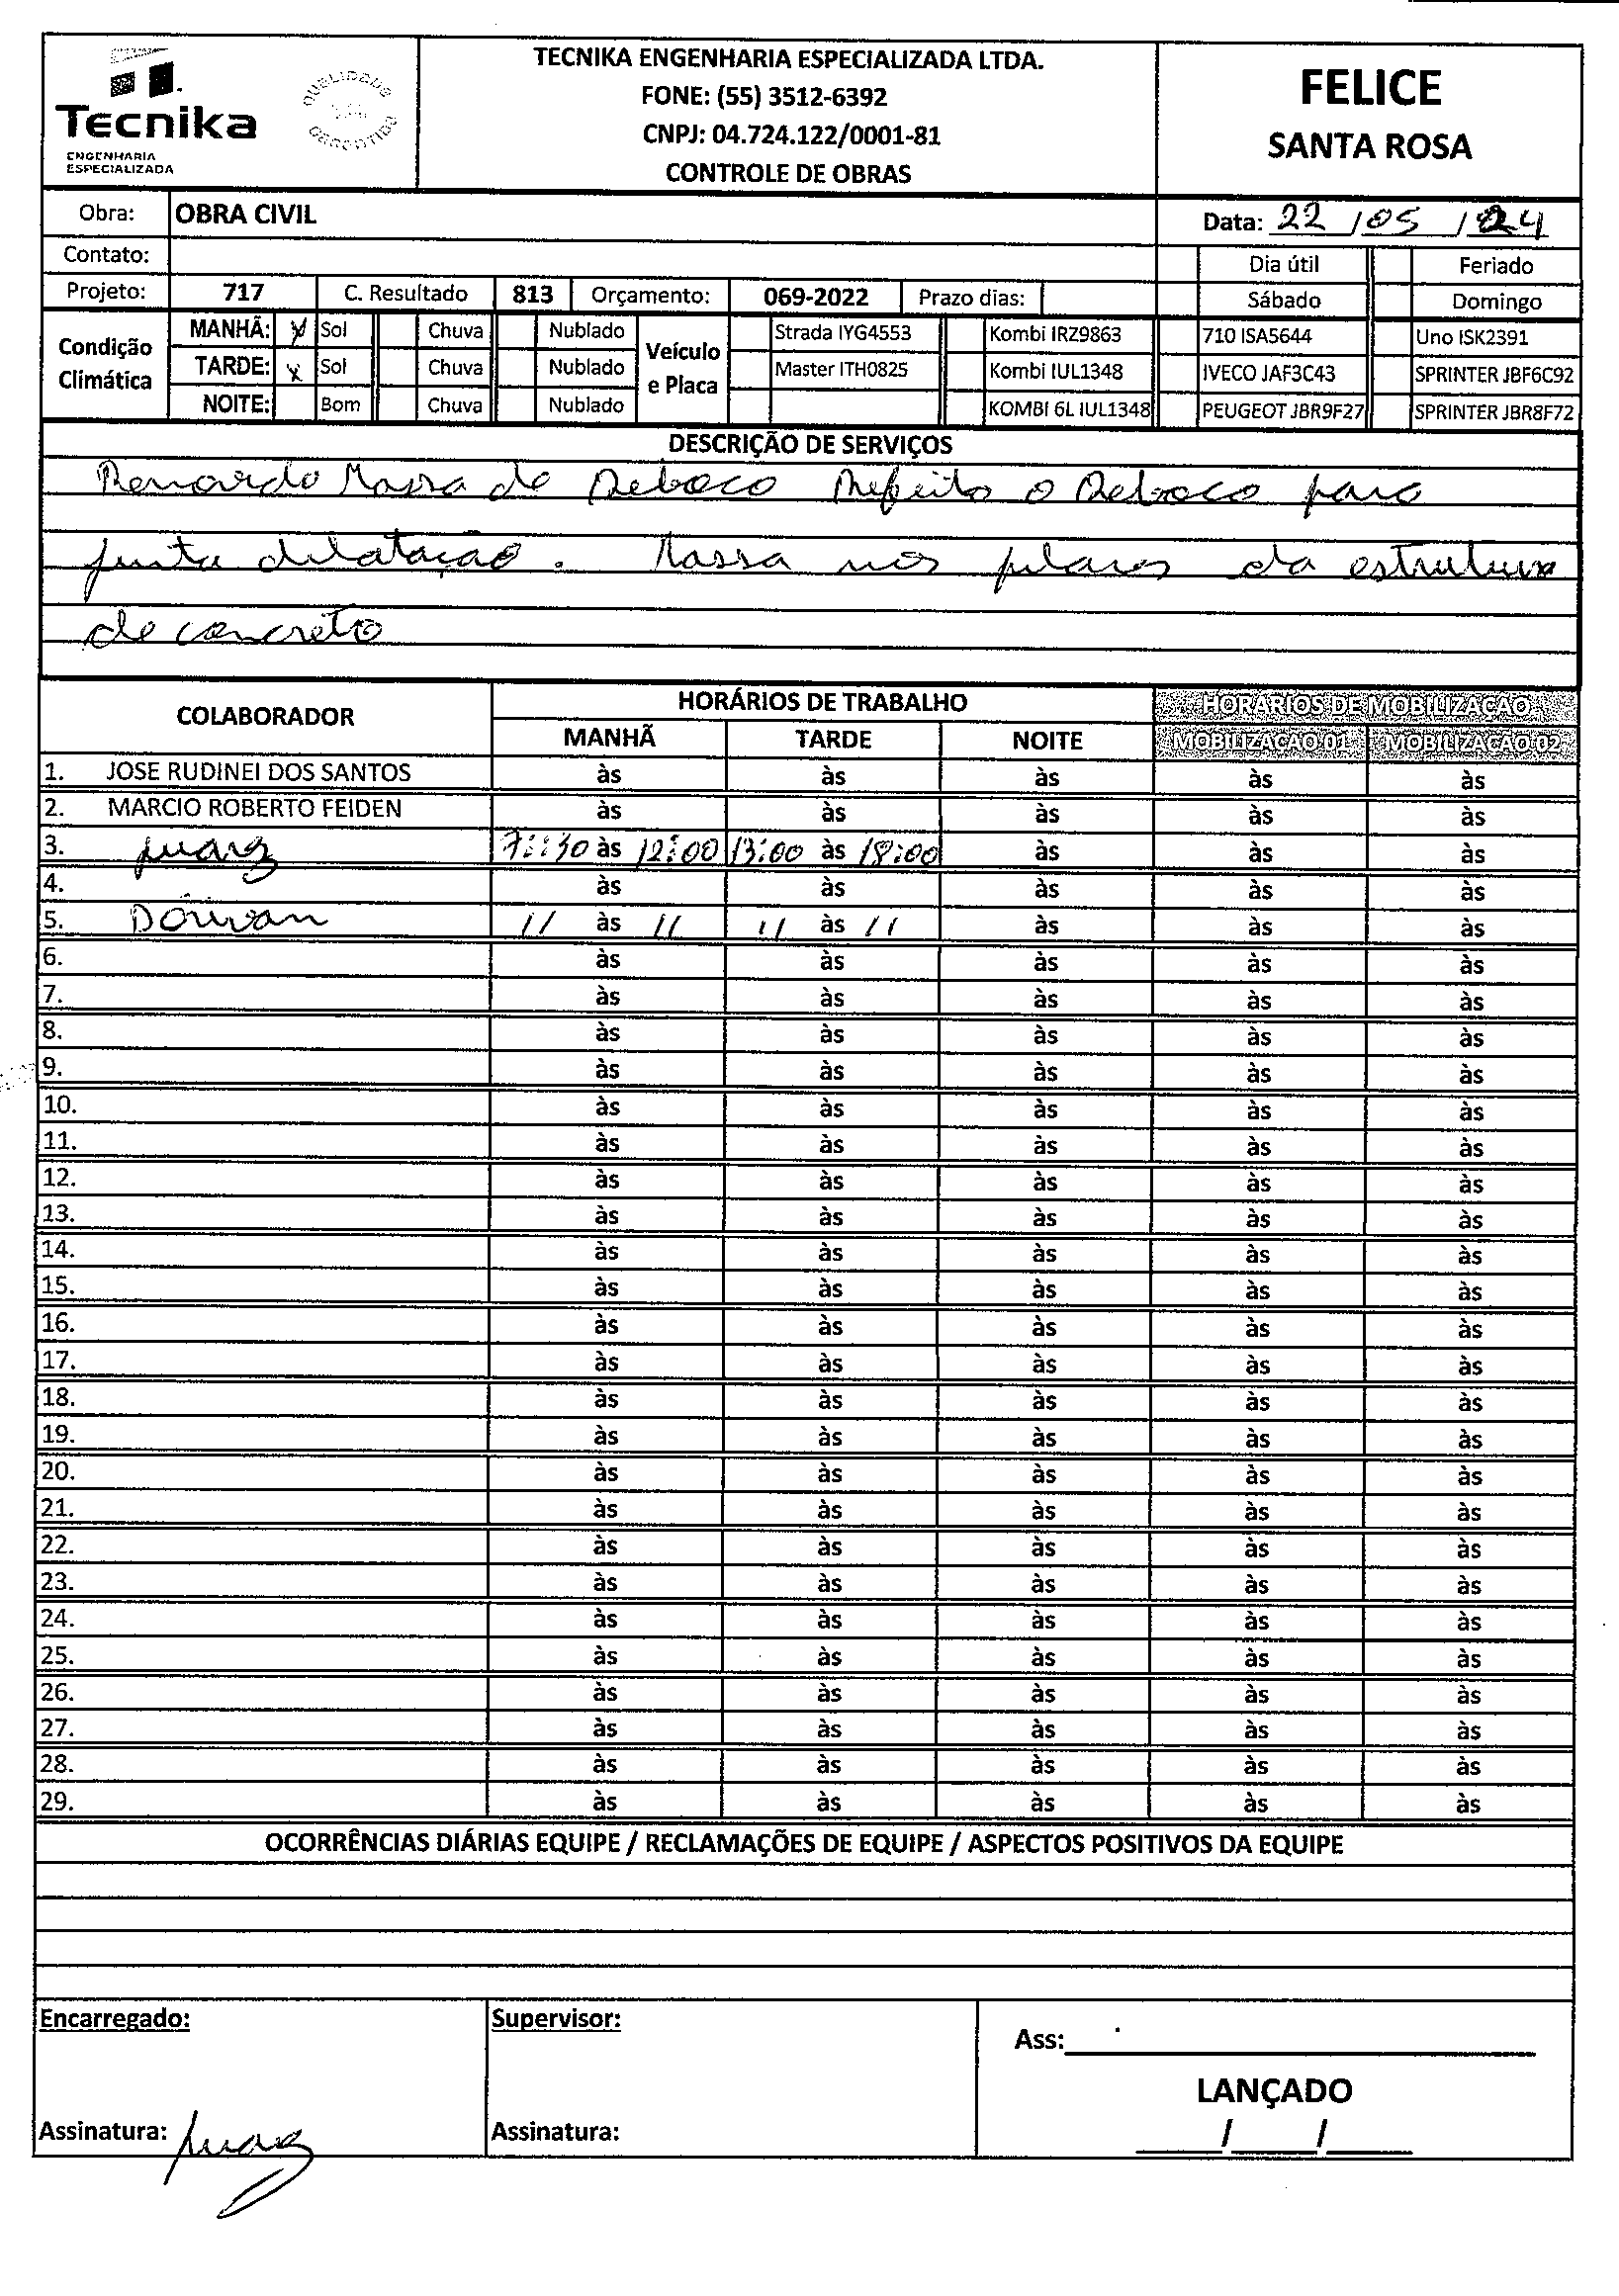 Tecnika
ENGENHARIA
ESPECIALIZADA
QUALIDADE
GARANTIDA
TECNIKA ENGENHARIA ESPECIALIZADA LTDA.
FONE: (55) 3512-6392
CNPJ: 04.724.122/0001-81
CONTROLE DE OBRAS
FELICE
SANTA ROSA
Obra: OBRA CIVIL
Data: 22/05/24
Contato:
Dia útil Feriado
Projeto: 717 C. Resultado 813 Orçamento: 069-2022 Prazo dias:
Sábado Domingo
Condição Climática
MANHÃ: X Sol Chuva Nublado
TARDE: X Sol Chuva Nublado
NOITE: Bom Chuva Nublado
Veículo e Placa
Strada IYG4553 Kombi IRZ9863 710 ISA5644 Uno ISK2391
Master ITH0825 Kombi IUL1348 IVECO JAF3C43 SPRINTER JBF6C92
KOMBI 6L IUL1348 PEUGEOT JBR9F27 SPRINTER JBR8F72
DESCRIÇÃO DE SERVIÇOS
Massa de Reboco Refeito o Reboco para
junta dilatação. Massa nos pilares da estrutura
de concreto
COLABORADOR HORÁRIOS DE TRABALHO HORÁRIOS DE MOBILIZAÇÃO
MANHÃ TARDE NOITE MOBILIZAÇÃO 01 MOBILIZAÇÃO 02
1. JOSE RUDINEI DOS SANTOS às às às às às
2. MARCIO ROBERTO FEIDEN às às às às às
3. Juarez 7:30 às 12:00 13:00 às 18:00 às às às
4. às às às às às
5. 11 às 11 11 às 11 às às às
6. às às às às às
7. às às às às às
8. às às às às às
9. às às às às às
10. às às às às às
11. às às às às às
12. às às às às às
13. às às às às às
14. às às às às às
15. às às às às às
16. às às às às às
17. às às às às às
18. às às às às às
19. às às às às às
20. às às às às às
21. às às às às às
22. às às às às às
23. às às às às às
24. às às às às às
25. às às às às às
26. às às às às às
27. às às às às às
28. às às às às às
29. às às às às às
OCORRÊNCIAS DIÁRIAS EQUIPE / RECLAMAÇÕES DE EQUIPE / ASPECTOS POSITIVOS DA EQUIPE
Encarregado:
Assinatura: Juarez
Supervisor:
Assinatura:
Ass:
LANÇADO
/ /